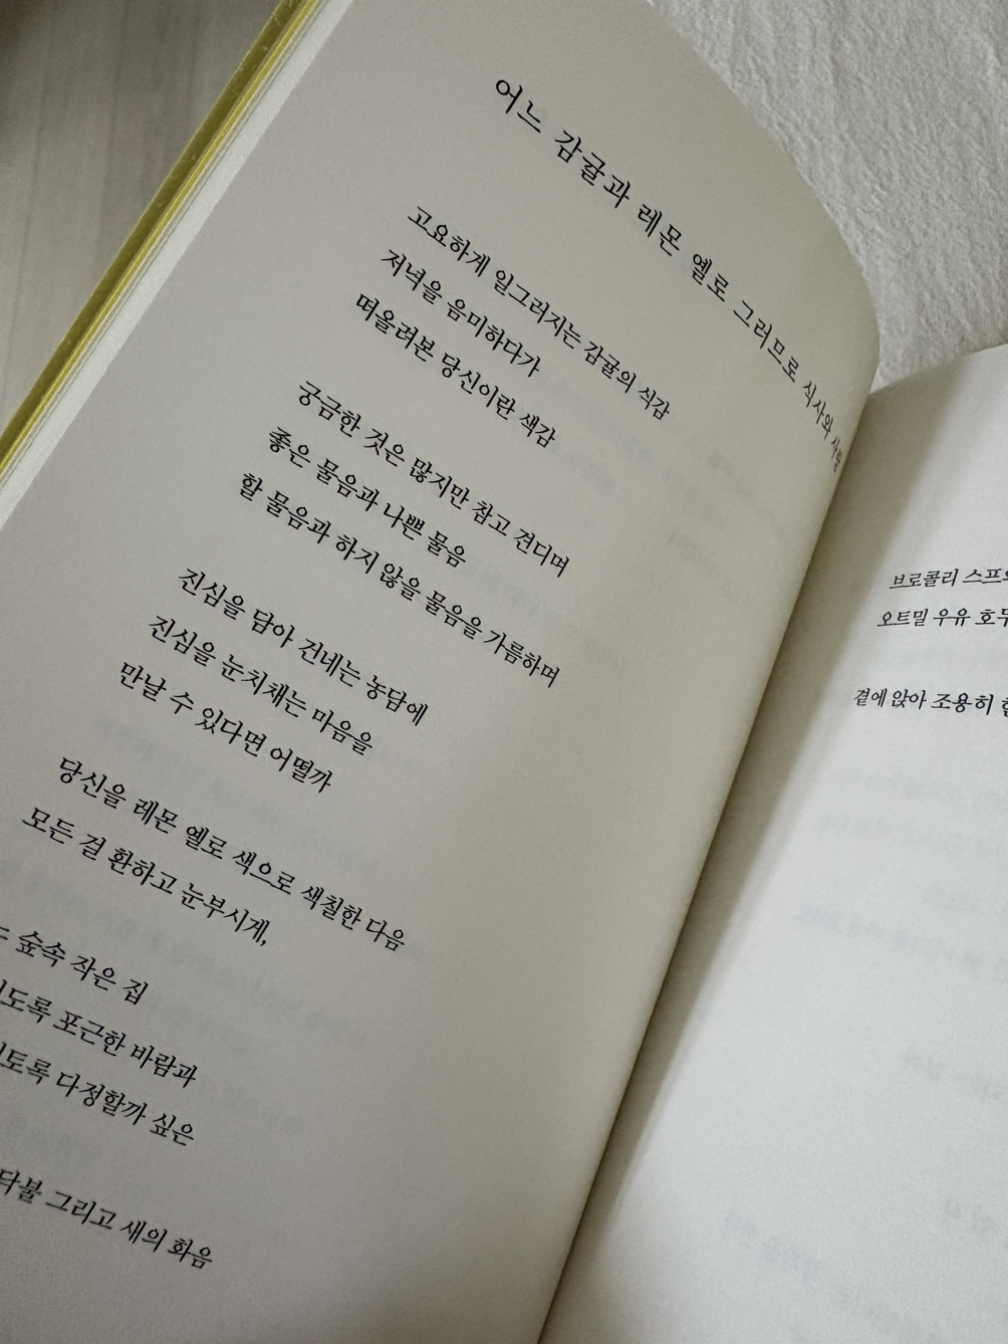 어느 감귤과 레몬 옐로 그러므로 식사와
고요하게 일그러지는 감귤의 식감
저녁을 음미하다가
떠올려본 당신이란 색감
궁금한 것은 많지만 참고 견디며
좋은 물음과 나쁜 물음
할 물음과 하지 않을 물음을 가름하며
진심을 담아 건네는 농담에
진심을 눈치채는 마음을
만날 수 있다면 어떨까
당신을 레몬 옐로 색으로 색칠한 다음
모든 걸 환하고 눈부시게,
숲속 작은 집
포근한 바람과
다정할까 싶은
그리고 새의 화음
브로콜리 스프
오트밀 우유
곁에 앉아 조용히